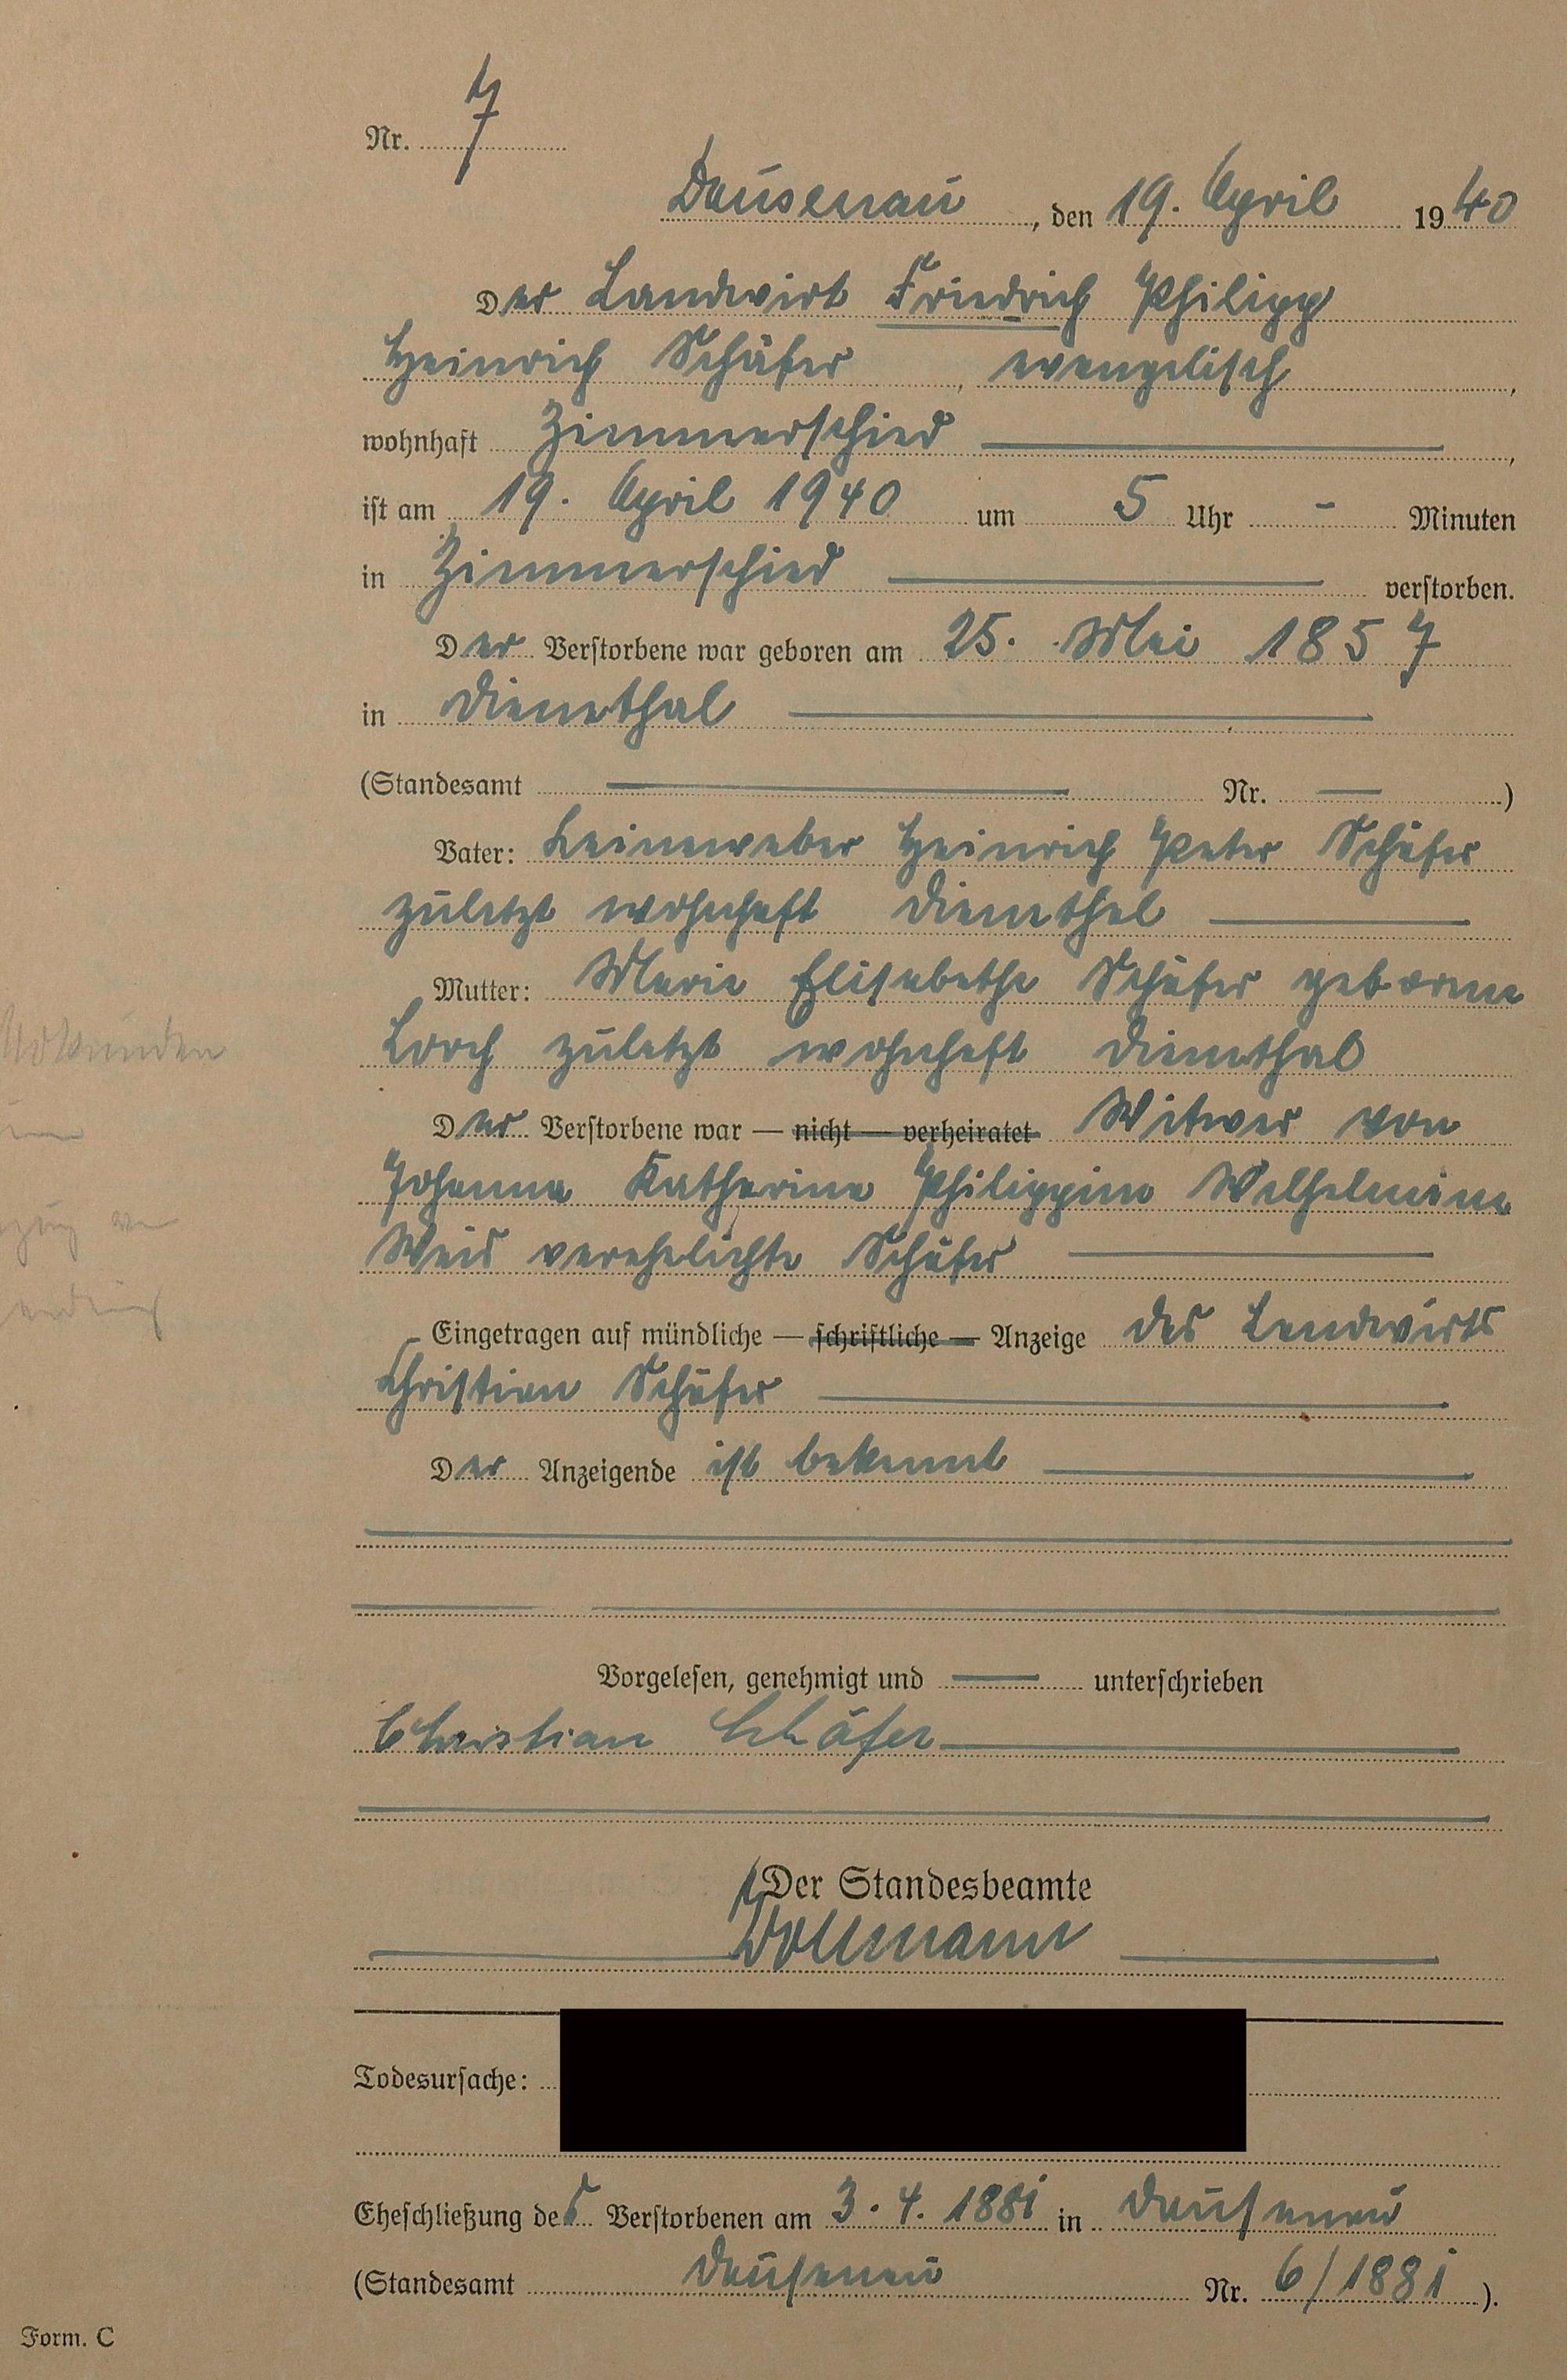 Nr. 7
Dausenau, den 19. April 1940
Der Landwirt Friedrich Philipp
Heinrich Schäfer, evangelisch,
wohnhaft Zimmerschied,
ist am 19. April 1940 um 5 Uhr - Minuten
in Zimmerschied verstorben.
Der Verstorbene war geboren am 25. Mai 1857
in Dienethal
(Standesamt — Nr. —)
Vater: Leineweber Heinrich Peter Schäfer
zuletzt wohnhaft Dienethal
Mutter: Marie Elisabethe Schäfer geborene
Lorch zuletzt wohnhaft Dienethal
Urkunden
Der Verstorbene war — nicht — verheiratet Witwer von
Johanna Katharina Philippine Wilhelmine
Weis verehelichte Schäfer
Eingetragen auf mündliche — schriftliche — Anzeige des Landwirts
Christian Schäfer
Der Anzeigende ist bekannt
Vorgelesen, genehmigt und — unterschrieben
Christian Schäfer
Der Standesbeamte
Wollmann
Todesursache:
Eheschließung des Verstorbenen am 3. 4. 1881 in Dausenau
(Standesamt Dausenau Nr. 6/1881).
Form. C